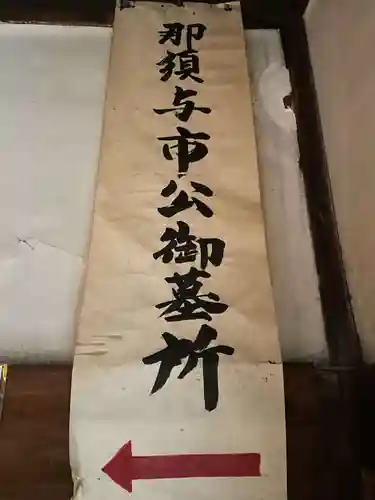 那須与市公御墓所